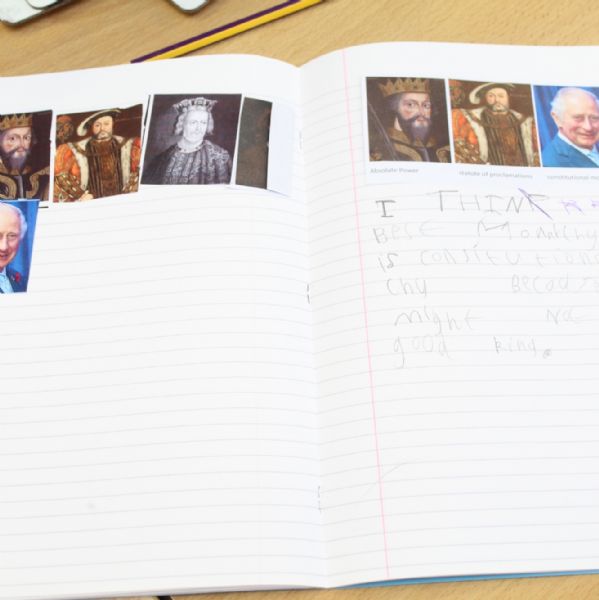 Absolute Power statute of proclamations constitutional mo
I THINK
Best Monarchy
is consitutiona
chy Becaus
might Not
good king.